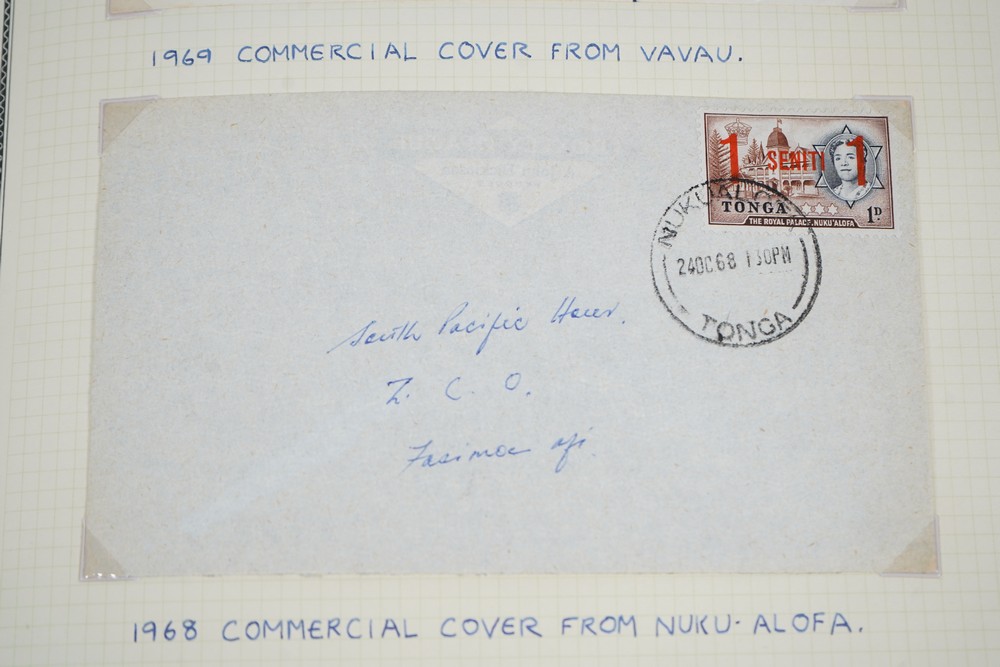 1969 COMMERCIAL COVER FROM VAVAU.
1 SENITI 1
TONGA 1D
THE ROYAL PALACE, NUKU'ALOFA
NUKUALOFA
24OC68 130PM
TONGA
South Pacific
Z. C. O.
1968 COMMERCIAL COVER FROM NUKU·ALOFA.